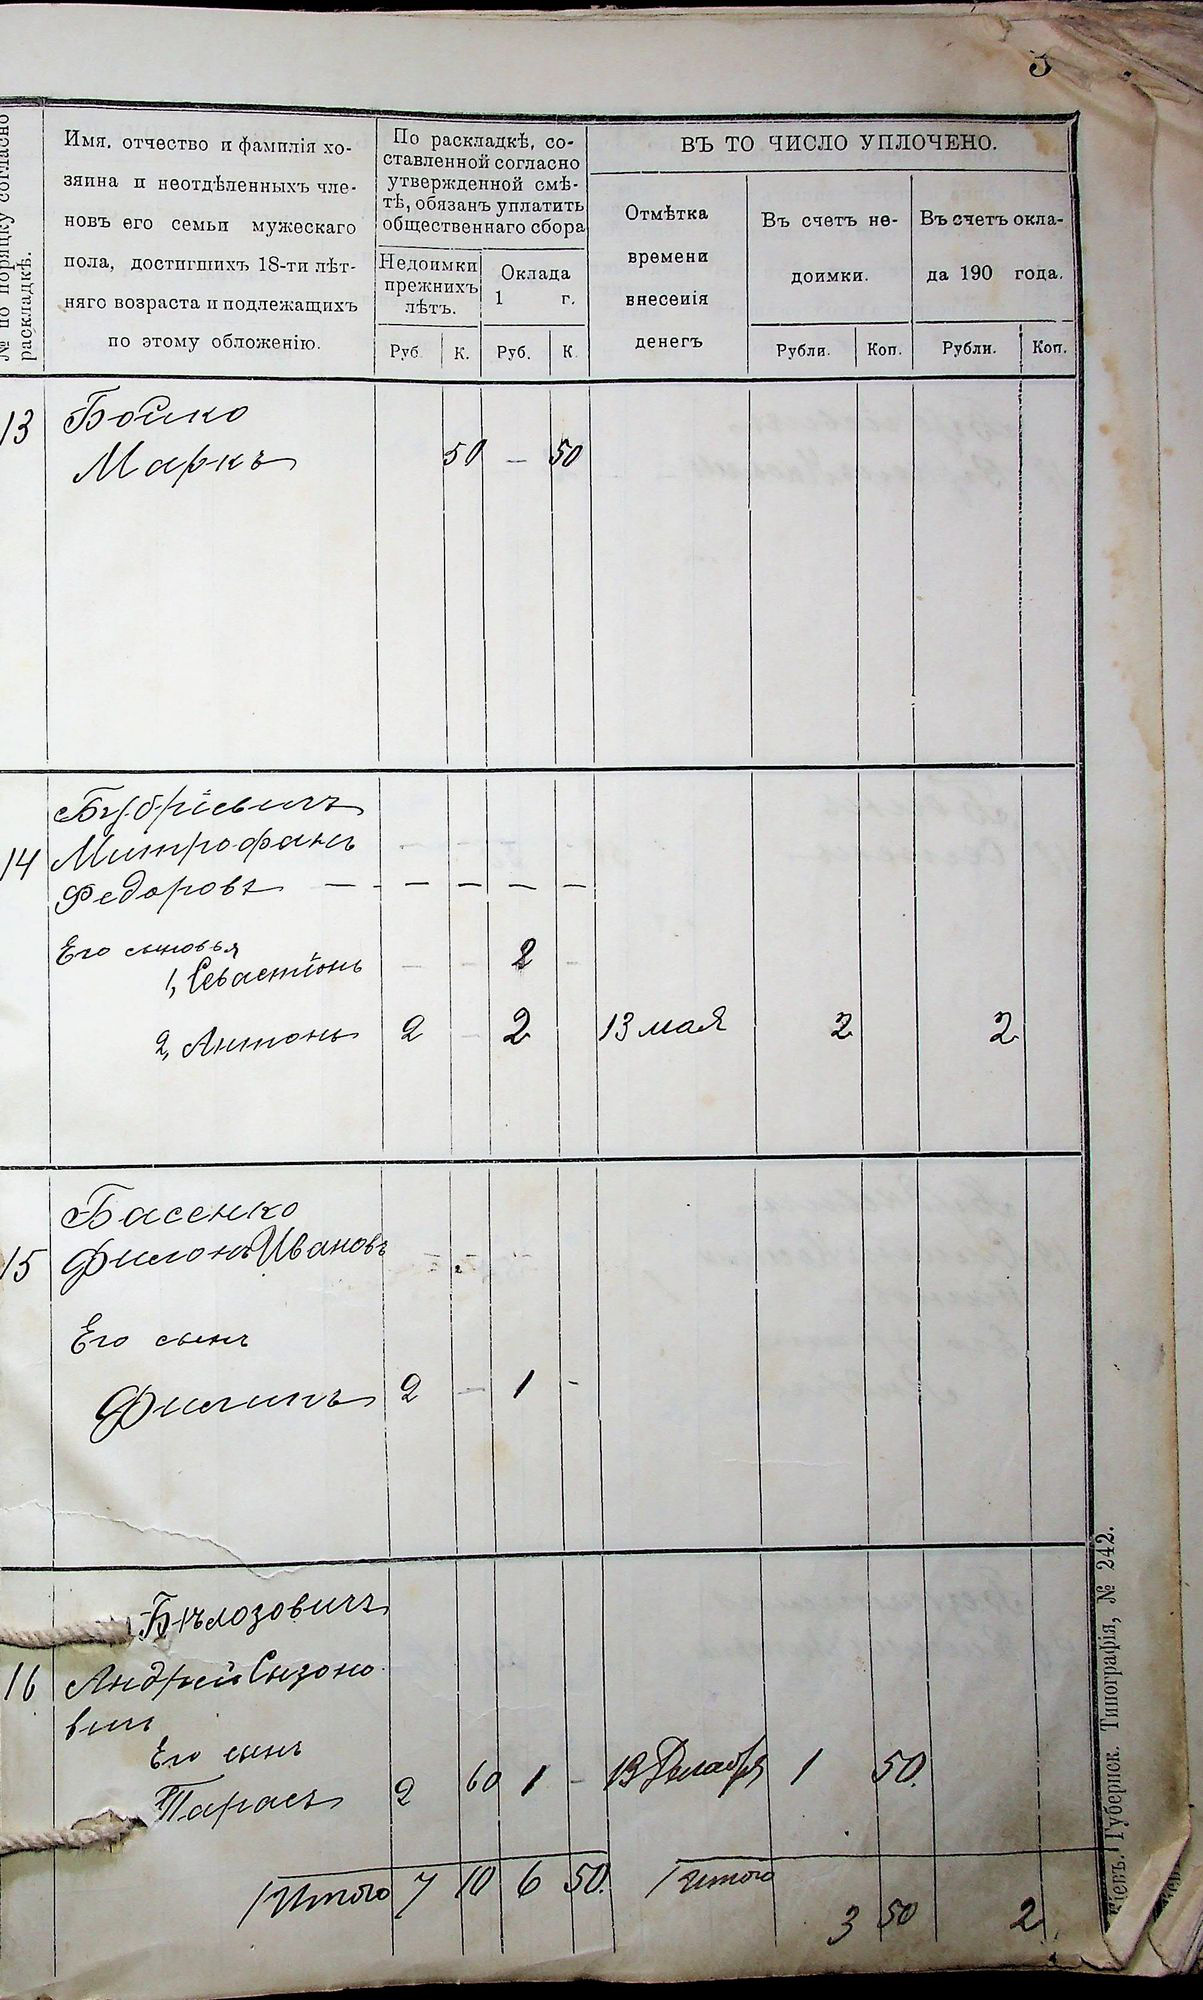 3
№ по порядку согласно
раскладкѣ.
Имя, отчество и фамилія хо-
зяина и неотдѣленныхъ чле-
новъ его семьи мужескаго
пола, достигшихъ 18-ти лѣт-
няго возраста и подлежащихъ
по этому обложенію.
По раскладкѣ, со-
ставленной согласно
утвержденной смѣ-
тѣ, обязанъ уплатить
общественнаго сбора
Недоимки
прежнихъ
лѣтъ.
Оклада
1 г.
Руб. К. Руб. К.
ВЪ ТО ЧИСЛО УПЛОЧЕНО.
Отмѣтка
времени
внесеиія
денегъ
Въ счетъ не-
доимки.
Въ счетъ окла-
да 190 года.
Рубли. Коп. Рубли. Коп.
Бойко
13
Маркъ 50 — 50
Бубріевичъ
14 Митрофанъ
Федоровъ — — — — —
Его сыновья
1, Севастіонъ — — 2 —
2, Антонъ 2 — 2 13 мая 2 2
Басенко
15 Филонъ Ивановъ
Его сынъ
Филипъ 2 — 1 -
Бѣлозовичъ
16 Андрей Сызоно
вич
Его сынъ
Тарасъ 2 60 1 — 13 Декабря 1 50.
Итого 7 10 6 50. Итого
3 50 2
Кіевъ. Губернск. Типографія, № 242.